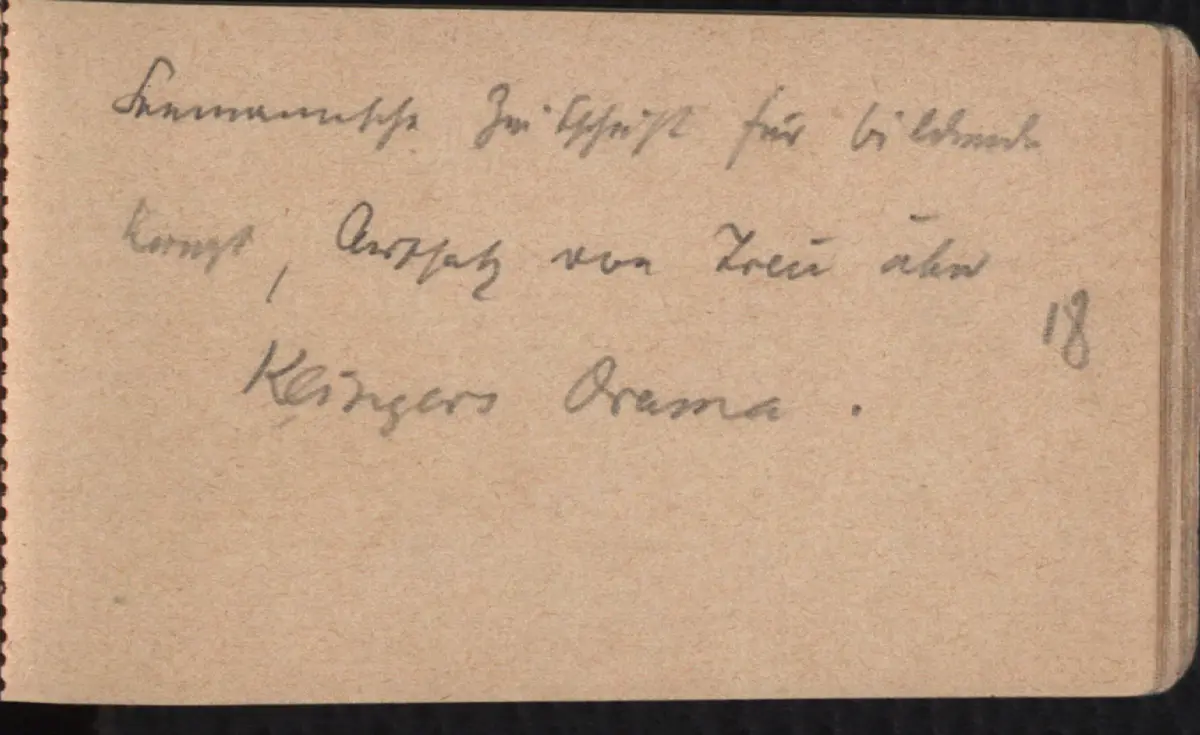 Seemannsche Zeitschrift für bildende
Kunst, Aufsatz von Treu über
18
Klingers Drama.